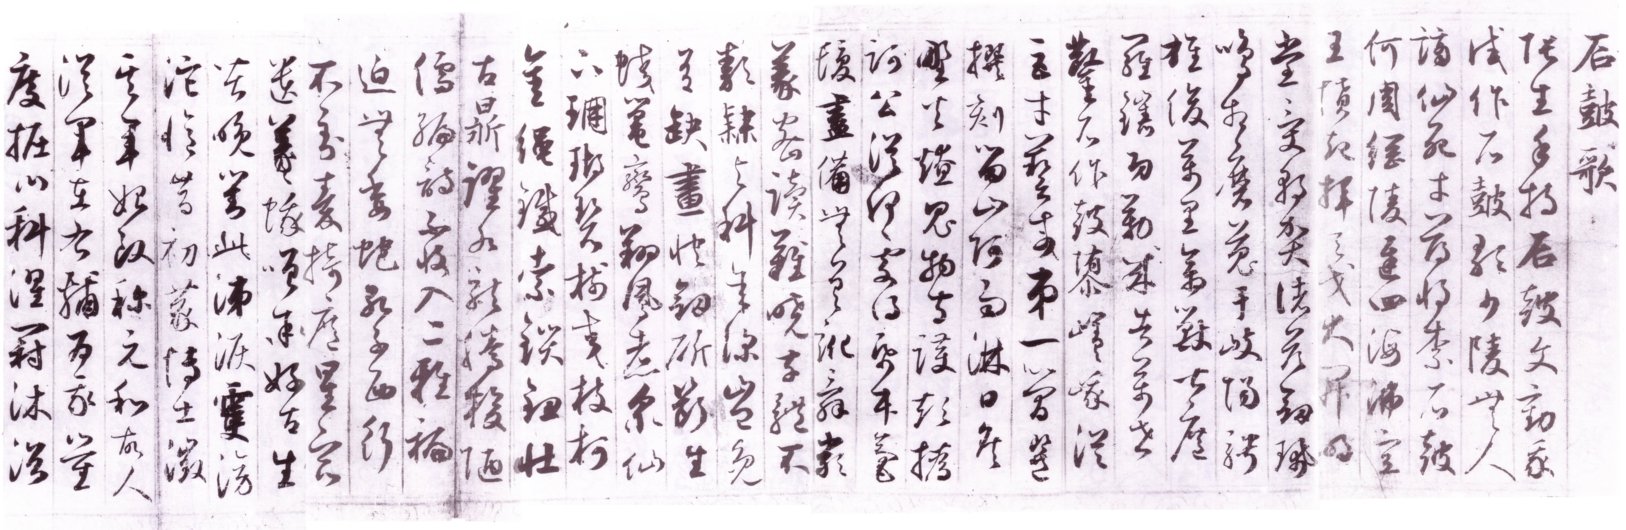 石鼓歌
張生手持石鼓文勸我
試作石鼓歌少陵無人
謫仙死才薄將柰石鼓
何周綱陵遲四海沸宣
王憤起揮天戈大開明
堂受朝賀諸侯劍珮
鳴相磨蒐于岐陽騁
雄俊萬里禽獸皆遮
羅鐫功勒成告萬世
鑿石作鼓隳嵯峨從
臣才藝咸第一簡選
撰刻留山阿雨淋日炙
野火燎鬼物守護煩撝
訶公從何處得紙本毫
髮盡備無差訛辭嚴
義密讀難曉字體不
類隸與科年深豈免
有缺畫快劍斫斷生
蛟鼉鸞翔鳳翥衆仙
下珊瑚碧樹交枝柯
金繩鐵索鎖鈕壯
古鼎躍水龍騰梭陋
儒編詩不收入二雅褊
迫無委蛇孔子西行
不到秦掎摭星宿
遺羲娥嗟余好古生
苦晚對此涕淚雙滂
沱憶昔初蒙博士徵
其年始改稱元和故人
從軍在右輔為我量
度掘臼科濯冠沐浴